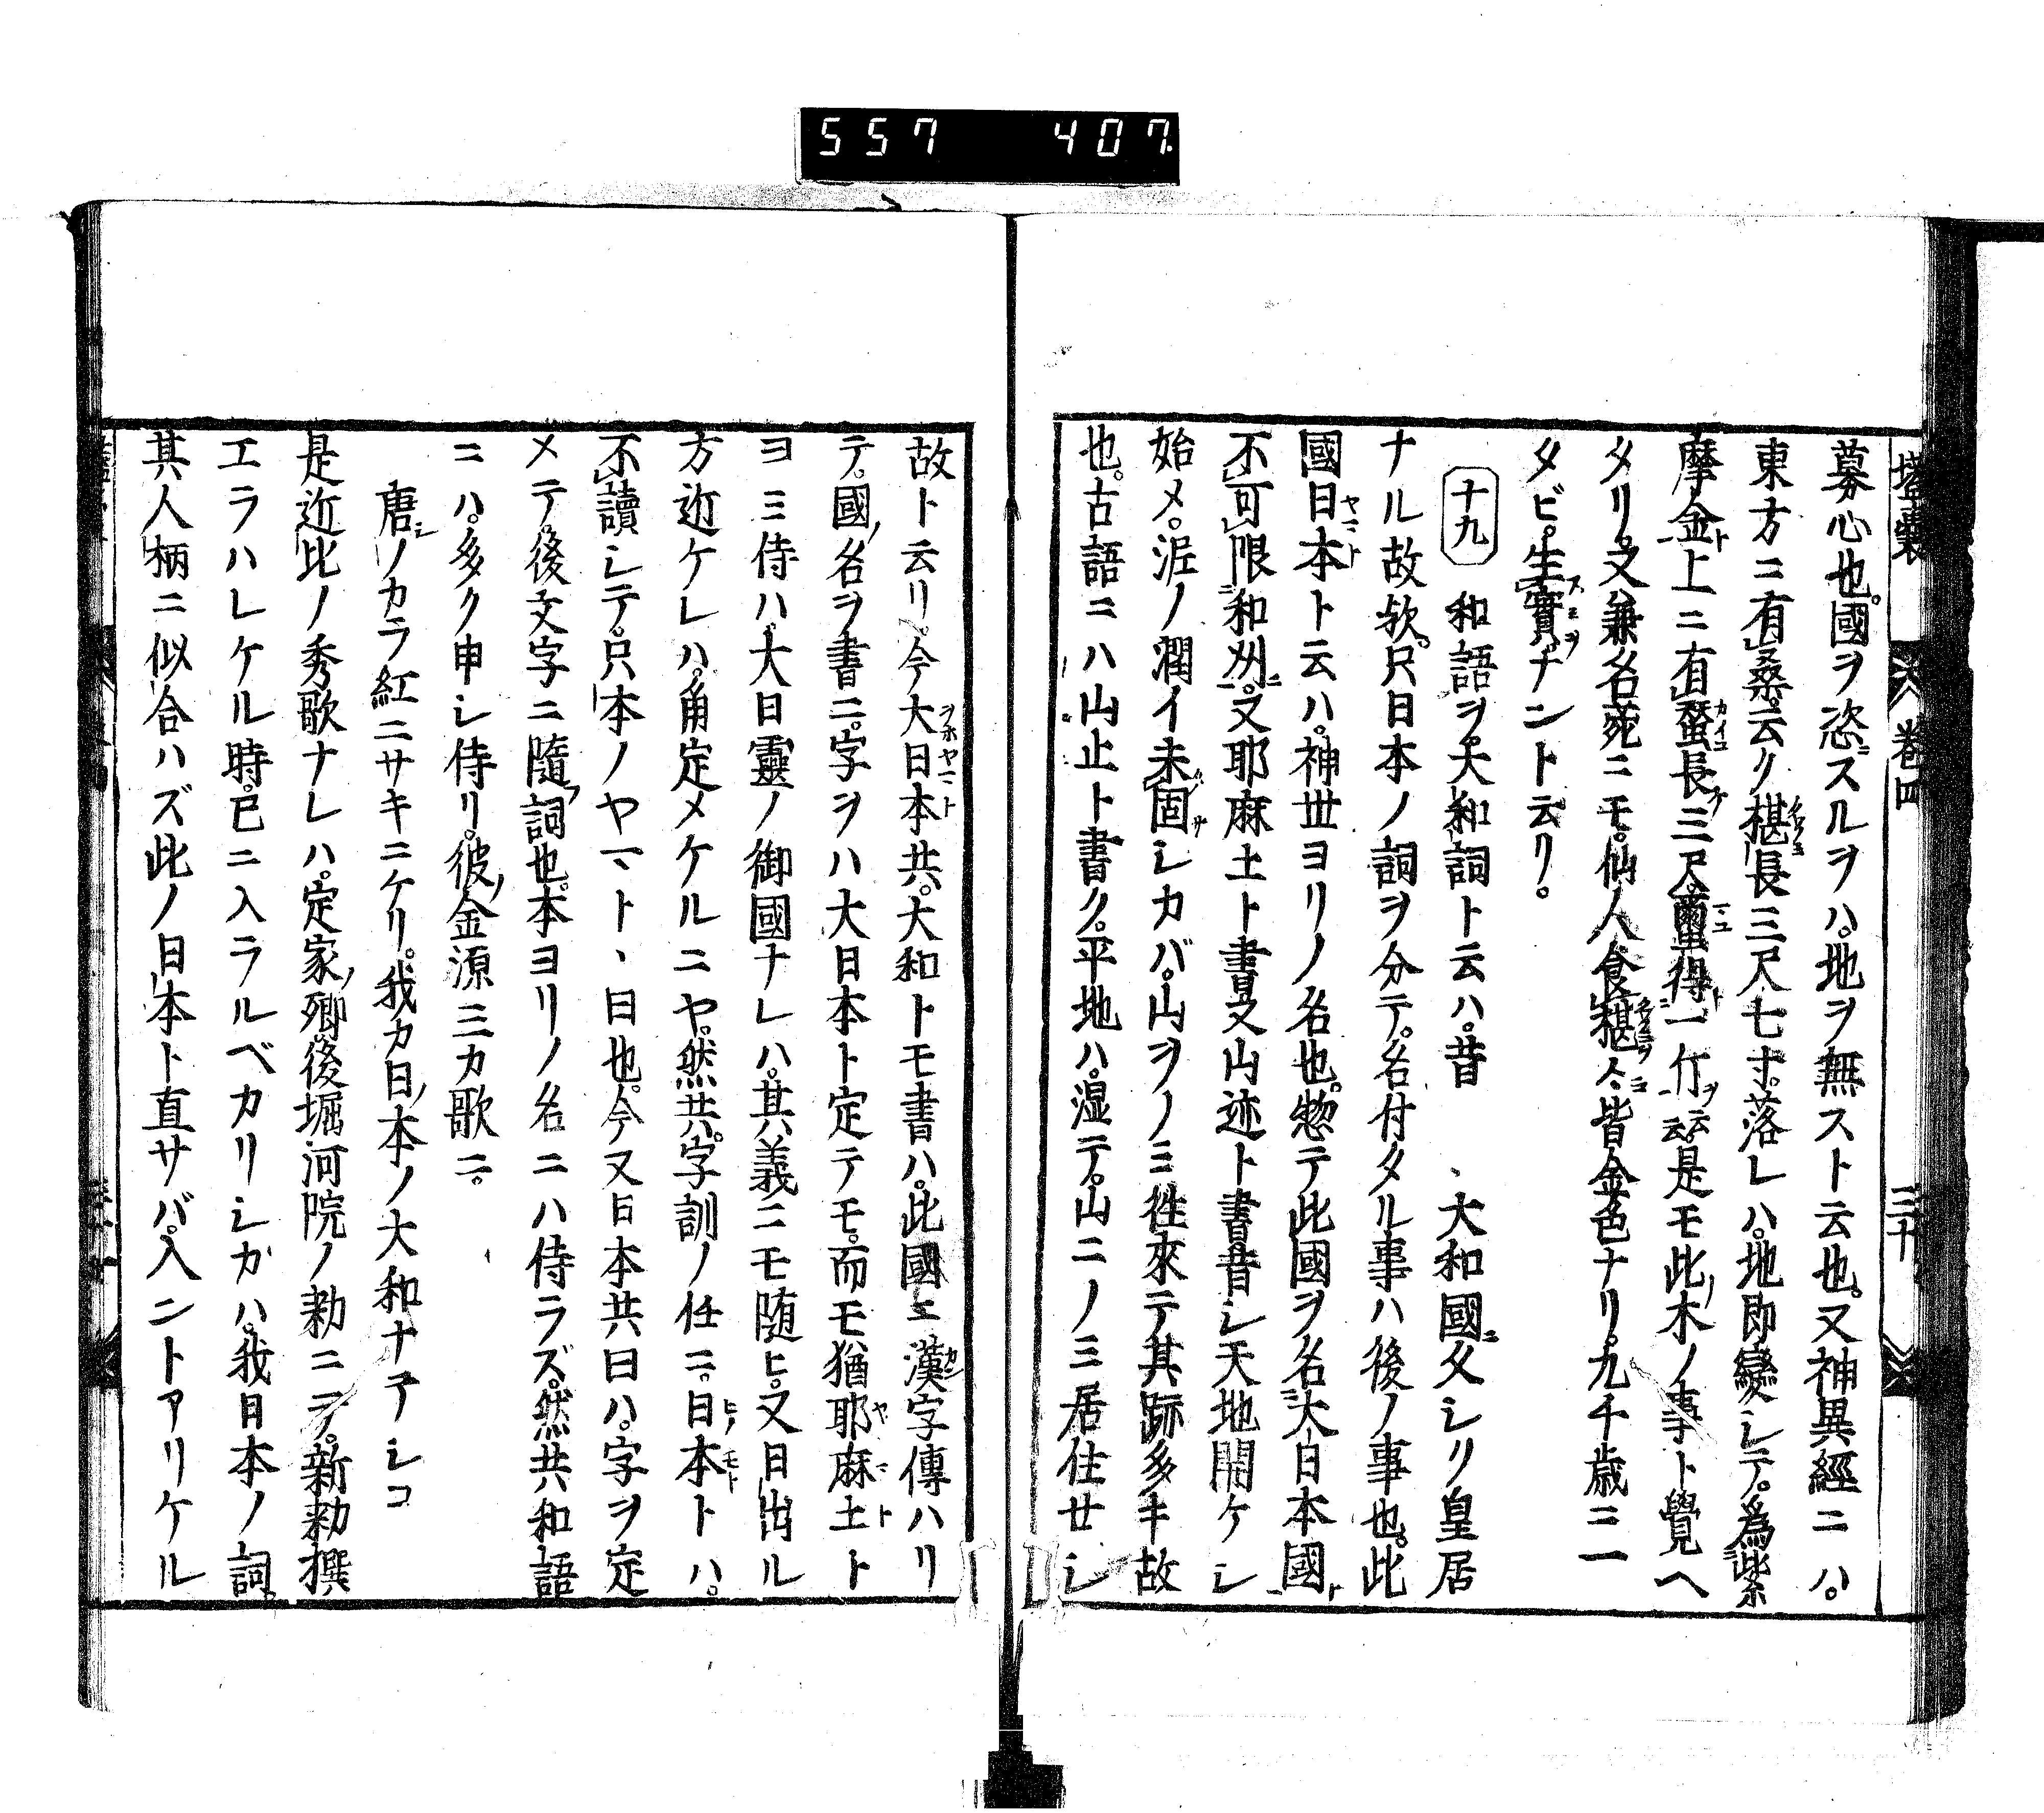 557 407
壒囊 巻四 三十
募心也。國ヲ恣ニスルヲハ。地ヲ無スト云也。又神異經ニハ。
東方ニ有桑云ク椹長三尺七寸。落レハ。地即變シテ。爲紫
摩金ト上ニ有蠶カイコ長サ三尺。蠒マユ得ト一斤ヲ云云。是モ此ノ木ノ事ト覺ヘ
タリ。又兼名苑ニモ。仙ノ人食椹ヲ人皆金色ナリ。九千歳ニ一
タビ。生實ヲナント云リ。
十九 和語ヲ。大和詞ト云ハ。昔、大和國ニ久シリ皇居
ナル故欤。只日本ノ詞ヲ分テ。名付タル事ハ後ノ事也。此
國日本ヤマトト云ハ。神世ヨリノ名也。惣テ此國ヲ名大日本國ト
不可限和刕ニ。又耶麻土ト書又山迹ト書。昔シ天地開ケシ
始メ。泥ノ潤イ未固シカバ。山ヲノミ徃來テ其跡多キ故
也。古語ニハ山止ト書ク。平地ハ。湿テ。山ニノミ居住セシ
故ト云リ。今大日本ヲホヤマト共。大和トモ書ハ。此國エ漢カン字傳ハリ
テ。國ノ名ヲ書ニ。字ヲハ大日本ト定テモ。而モ猶耶麻土ヤマトト
ヨミ侍ハ。大日靈ノ御國ナレハ。其義ニモ随ヒ。又日出ル
方近ケレハ。角定メケルニヤ。然共。字訓ノ任ニ。日本ヒノモトトハ。
不讀シテ。只本ノヤマト、曰也。今又日本共曰ハ。字ヲ定
メテ。後文字ニ隨フ詞也。本ヨリノ名ニハ侍ラズ。然共和語
ニハ。多ク申シ侍リ。彼ノ金源三カ歌ニ。
唐シノカラ紅ニサキニケリ。我カ日ノ本ノ大和ナテシコ
是近比ノ秀歌ナレハ。定家ノ卿。後堀河院ノ勅ニヲ。新勅撰
エラハレケル時。已ニ入ラルベカリシカハ。我日本ノ詞。
其人柄ニ似合ハズ此ノ日本ト直サバ。入ントアリケル